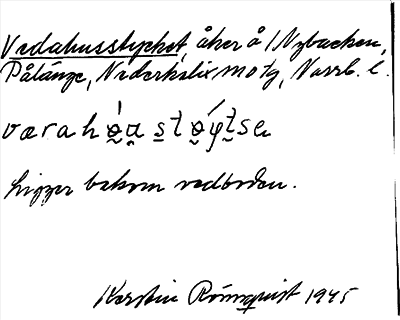 Vedahusstycket, åker å /Nybacken,
Pålänge, Nederkalix mo tg, Norrb. l.
værahǿ̬a̬ s̱tǿ̬yt̠se
Ligger bakom vedboden.
Kerstin Rönnqvist 1945